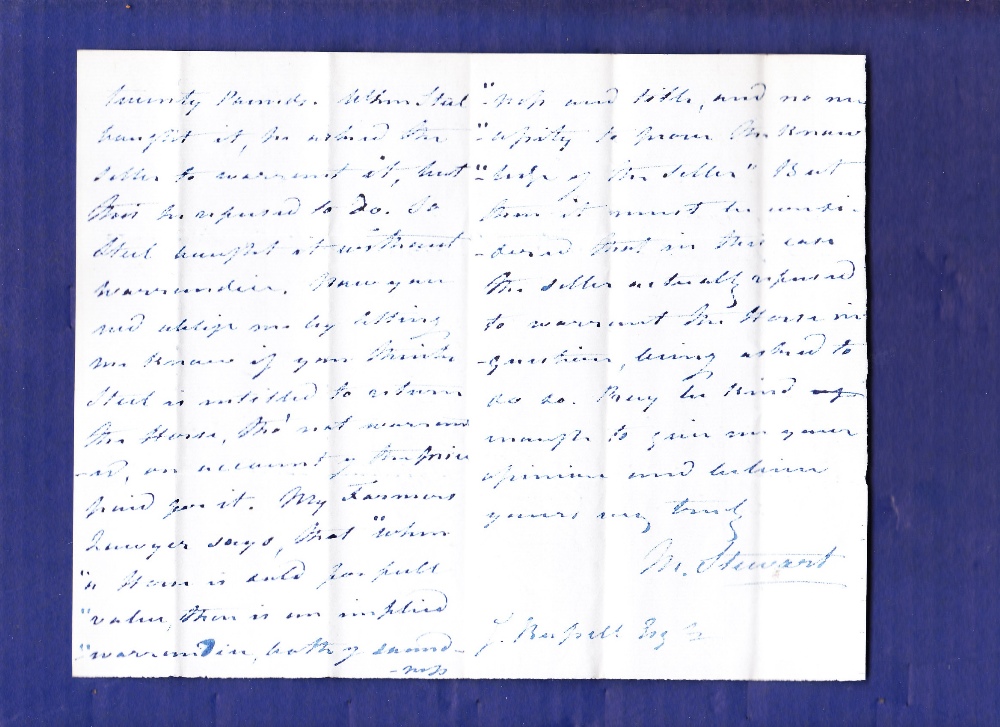 twenty Pounds. When Steel
bought it, he asked the
seller to warrant it, but
this he refused to do. So
Steel bought it without
warrandice. Now you
will oblige me by letting
me know if you think
Steel is entitled to return
the Horse, tho' not warrant
-ed, on account of the price
paid for it. My Farmers
Lawyer says, that "when
"a Horse is sold for full
"value, there is an implied
"warrandice, both of sound-
-ness
"-ness and title, and no ne
"-cessity to prove the know
"-ledge of the seller" But
then it must be consi-
-dered that in this case
the seller actually refused
to warrant the Horse in
question, being asked to
do so. Pray be kind
enough to give me your
opinion and believe
yours very truly
M. Stewart
J. Russell Esqr